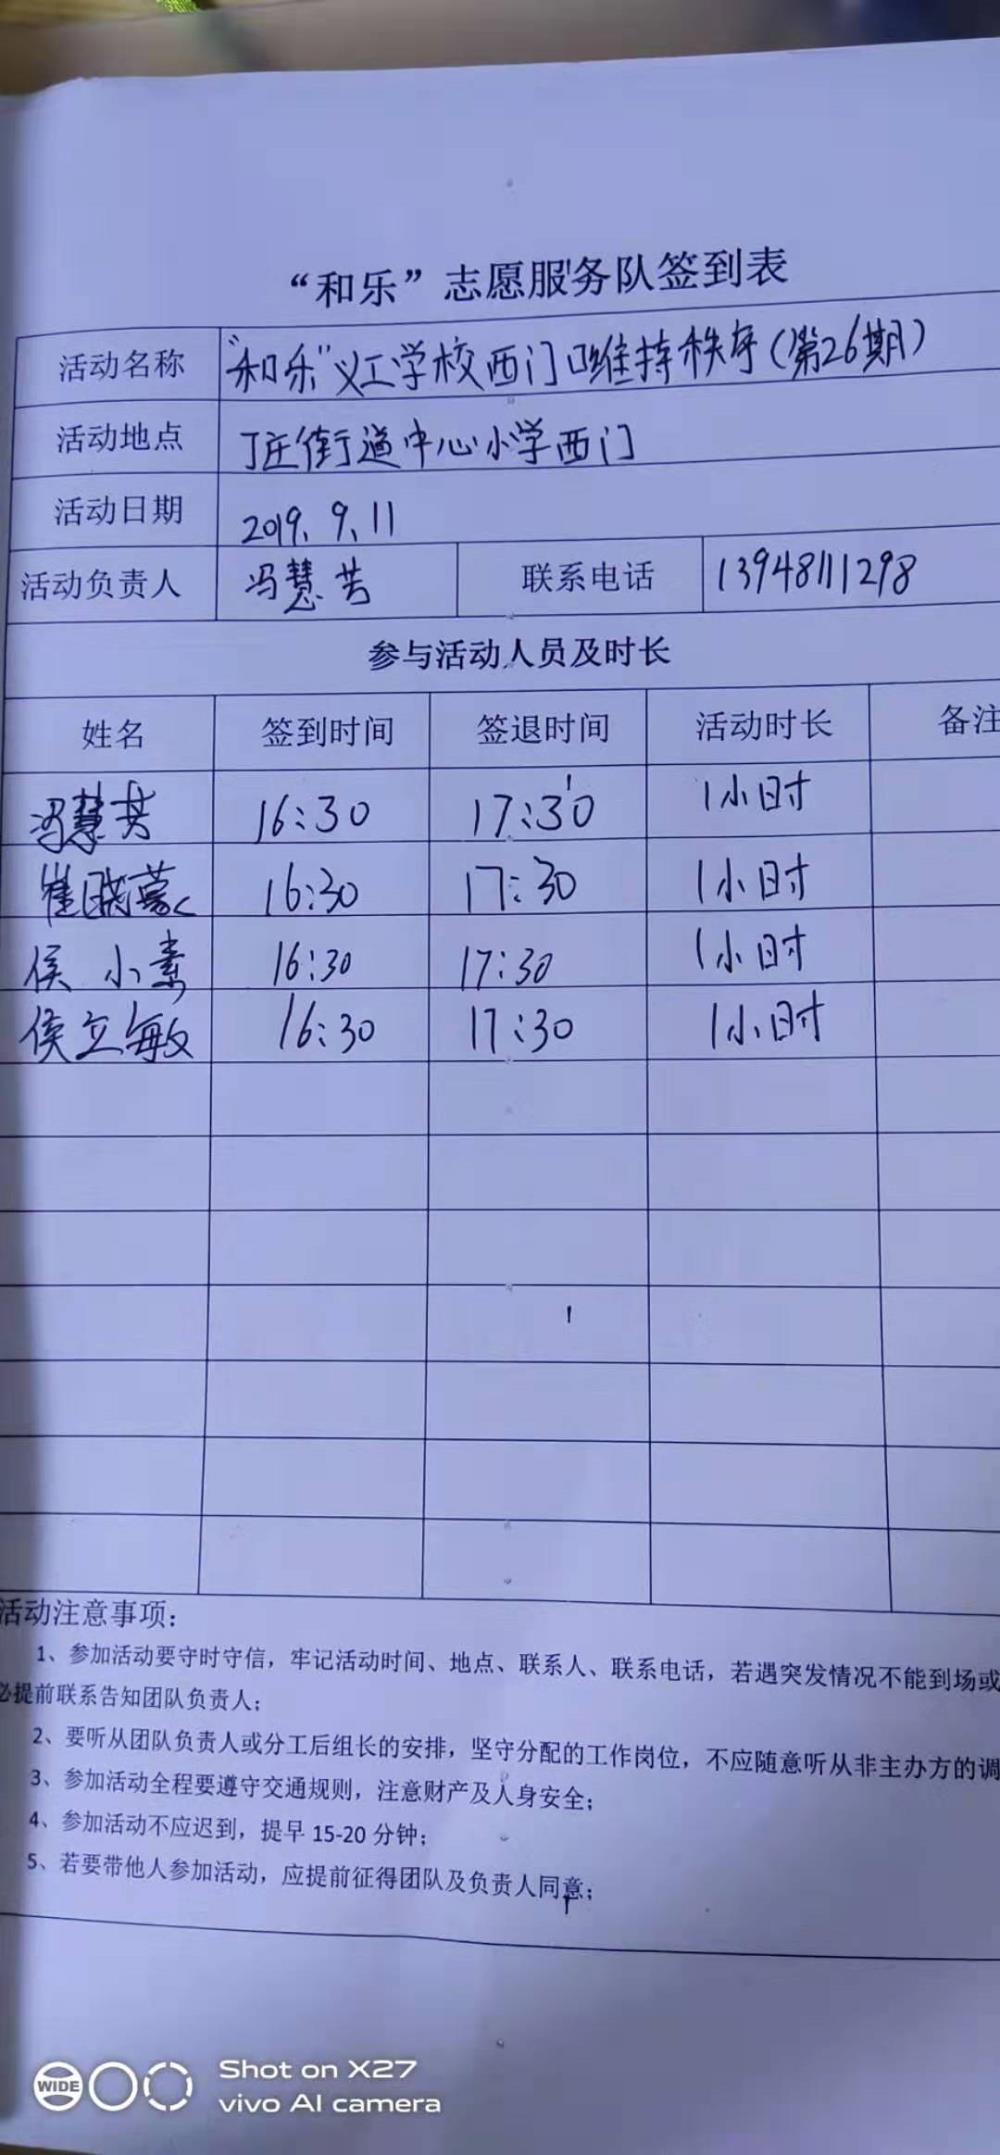 “和乐”志愿服务队签到表
活动名称 “和乐”义工学校西门口维持秩序(第26期)
活动地点 丁庄街道中心小学西门
活动日期 2019.9.11
活动负责人 冯慧芳 联系电话 13948111298
参与活动人员及时长
姓名 签到时间 签退时间 活动时长 备注
冯慧芳 16:30 17:30 1小时
崔晓蒙 16:30 17:30 1小时
侯小素 16:30 17:30 1小时
侯立敏 16:30 17:30 1小时
活动注意事项：
1、参加活动要守时守信，牢记活动时间、地点、联系人、联系电话，若遇突发情况不能到场或
必提前联系告知团队负责人；
2、要听从团队负责人或分工后组长的安排，坚守分配的工作岗位，不应随意听从非主办方的调
3、参加活动全程要遵守交通规则，注意财产及人身安全；
4、参加活动不应迟到，提早 15-20 分钟；
5、若要带他人参加活动，应提前征得团队及负责人同意；
WIDE
Shot on X27
vivo AI camera